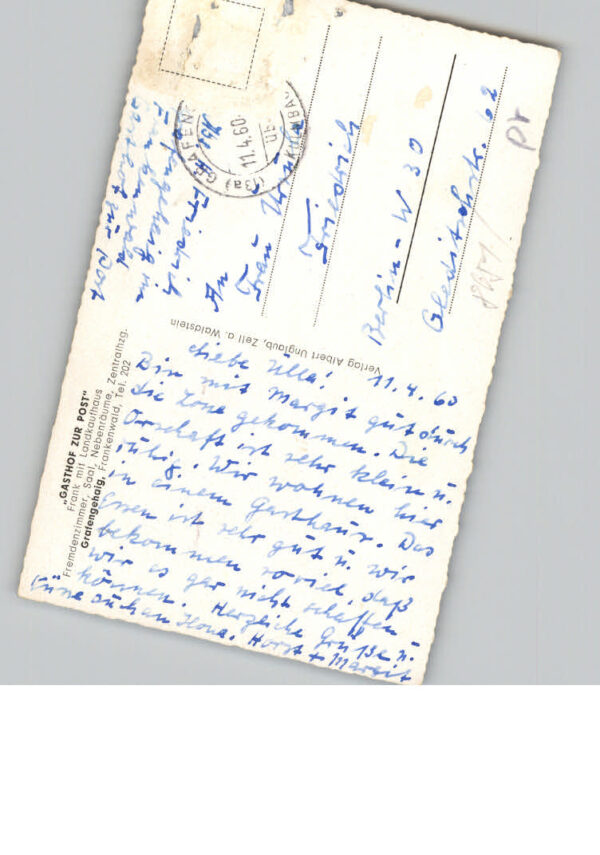 „GASTHOF ZUR POST"
Frank mit Landkaufhaus
Fremdenzimmer, Saal, Nebenräume, Zentralhzg.
Grafengehaig, Frankenwald, Tel. 202
Verlag Albert Unglaub, Zell a. Waldstein
11.4.60
Liebe Ulla!
Bin mit Margit gut durch
die Zone gekommen. Die
Ortschaft ist sehr klein u.
ruhig. Wir wohnen hier
in einem Gasthaus. Das
Essen ist sehr gut u. wir
bekommen soviel, daß
wir es gar nicht schaffen
können. Herzliche Grüße u.
Küsse auch an Ilona. Horst + Margit
11.4.60
An
Frau
Friedrich
Berlin - W 30
Gleditschstr. 62
Friedrich
Grafengehaig im
Frankenwald
Gasthof zur Post